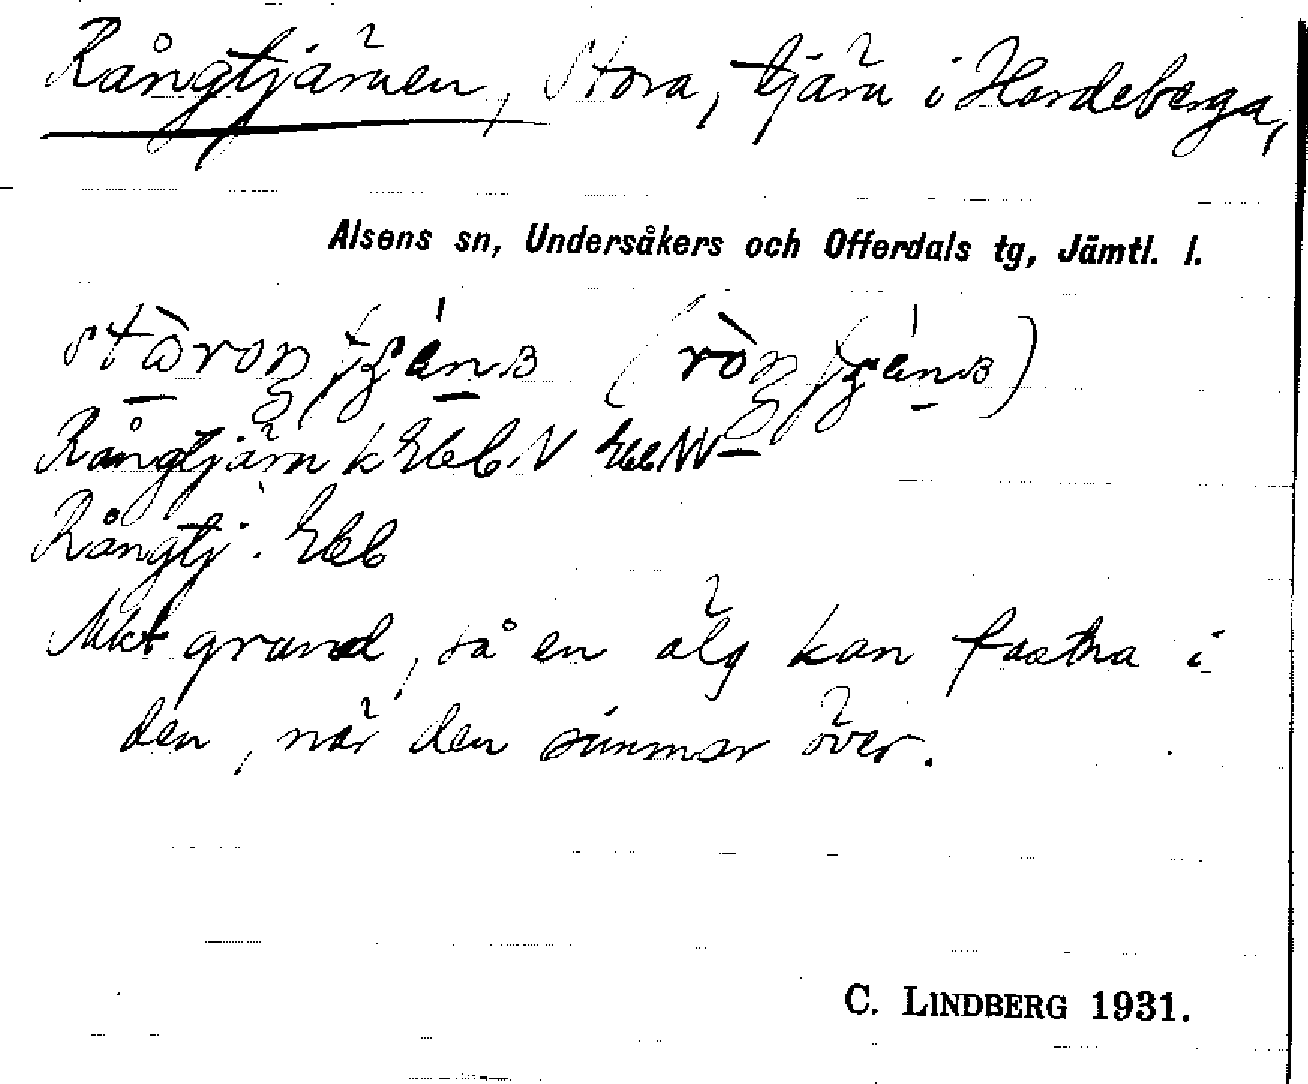 Rångtjärnen, Stora, tjärn i Hordeberga,
Alsens sn, Undersåkers och Offerdals tg, Jämtl. l.
Rångtjärn k Ebl. N
Rångtj.
Mkt grund, så en älg kan fastna i
den, när den simmar över.
C. LINDBERG 1931.